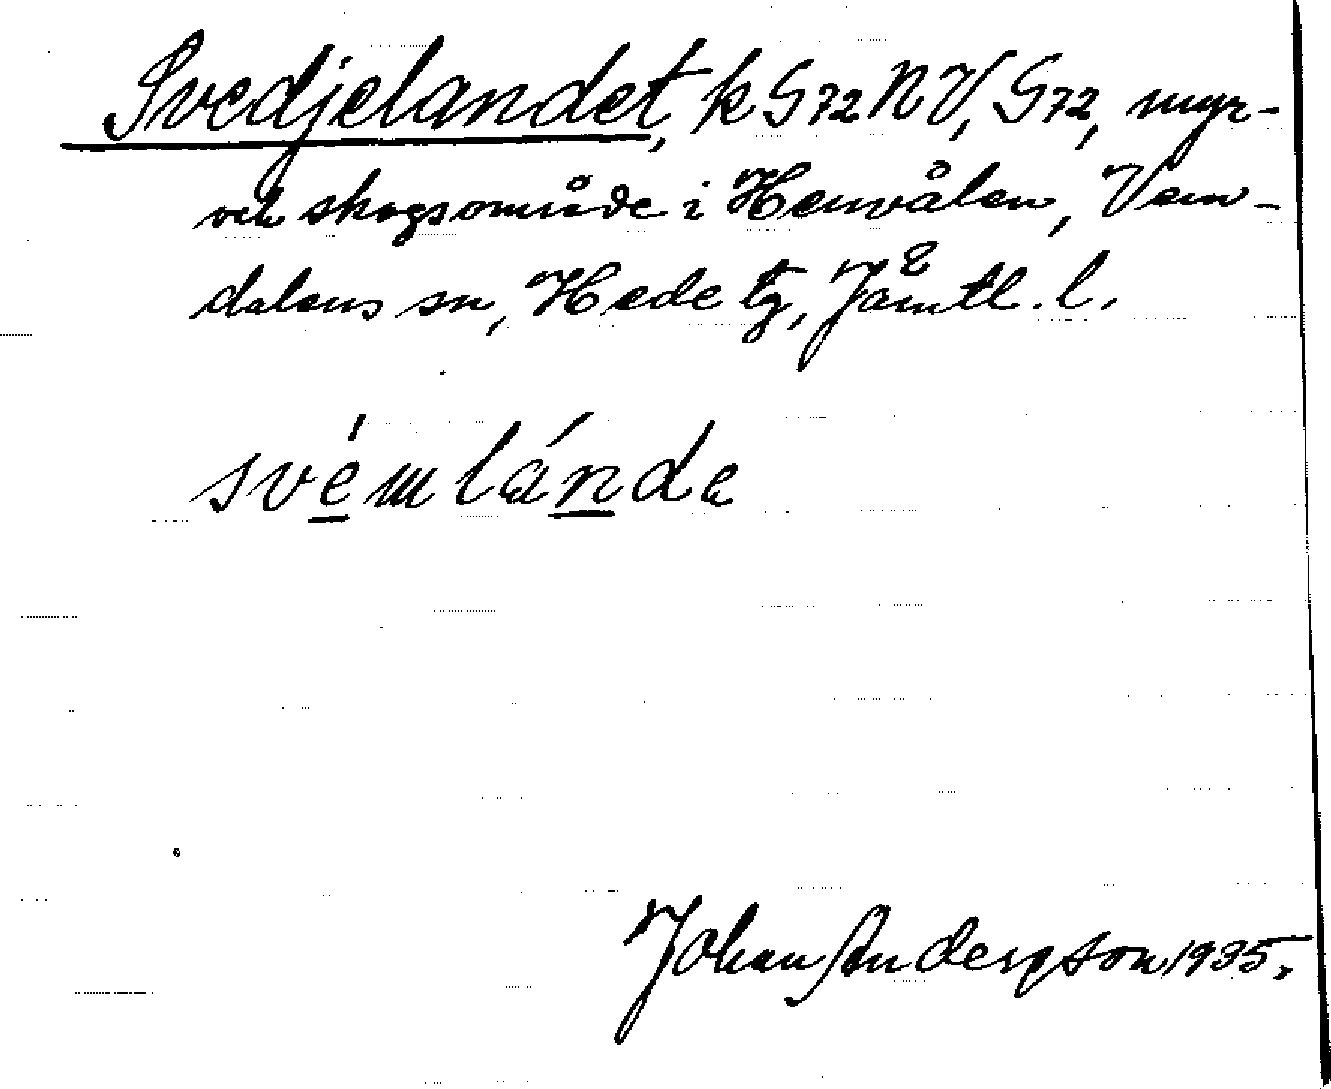 Svedjelandet, k G72NV, G72, myr-
och skogsområde i Henvålen, Vem-
dalens sn, Hede tg, Jämtl. l.
svémlánde
Johan Andersson 1935.